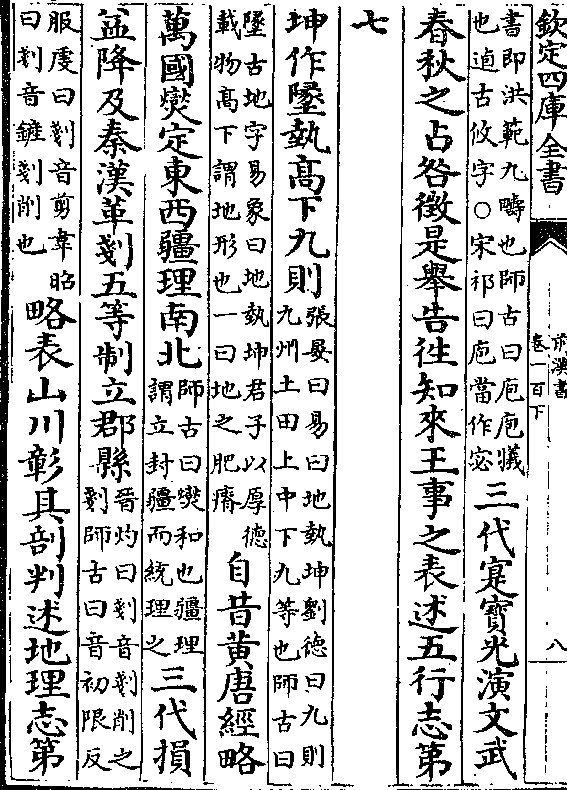 欽定四庫全書
前漢書
卷一百下
八
書即洪範九疇也師古曰庖庖犧
也逌古攸字○宋祁曰庖當作宓
三代寔寶光演文武
春秋之占咎徵是舉告徃知來王事之表述五行志第
七
坤作墬埶髙下九則
張晏曰易曰地埶坤劉德曰九則
九州土田上中下九等也師古曰
墬古地字易象曰地埶坤君子以厚德
載物髙下謂地形也一曰地之肥瘠
自昔黄唐經略
萬國爕定東西疆理南北
師古曰爕和也疆理
謂立封疆而統理之
三代損
益降及秦漢革剗五等制立郡縣
晉灼曰剗音剗削之
剗師古曰音初限反
服虔曰剗音剪韋昭
曰剗音鏟剗削也
略表山川彰其剖判述地理志第